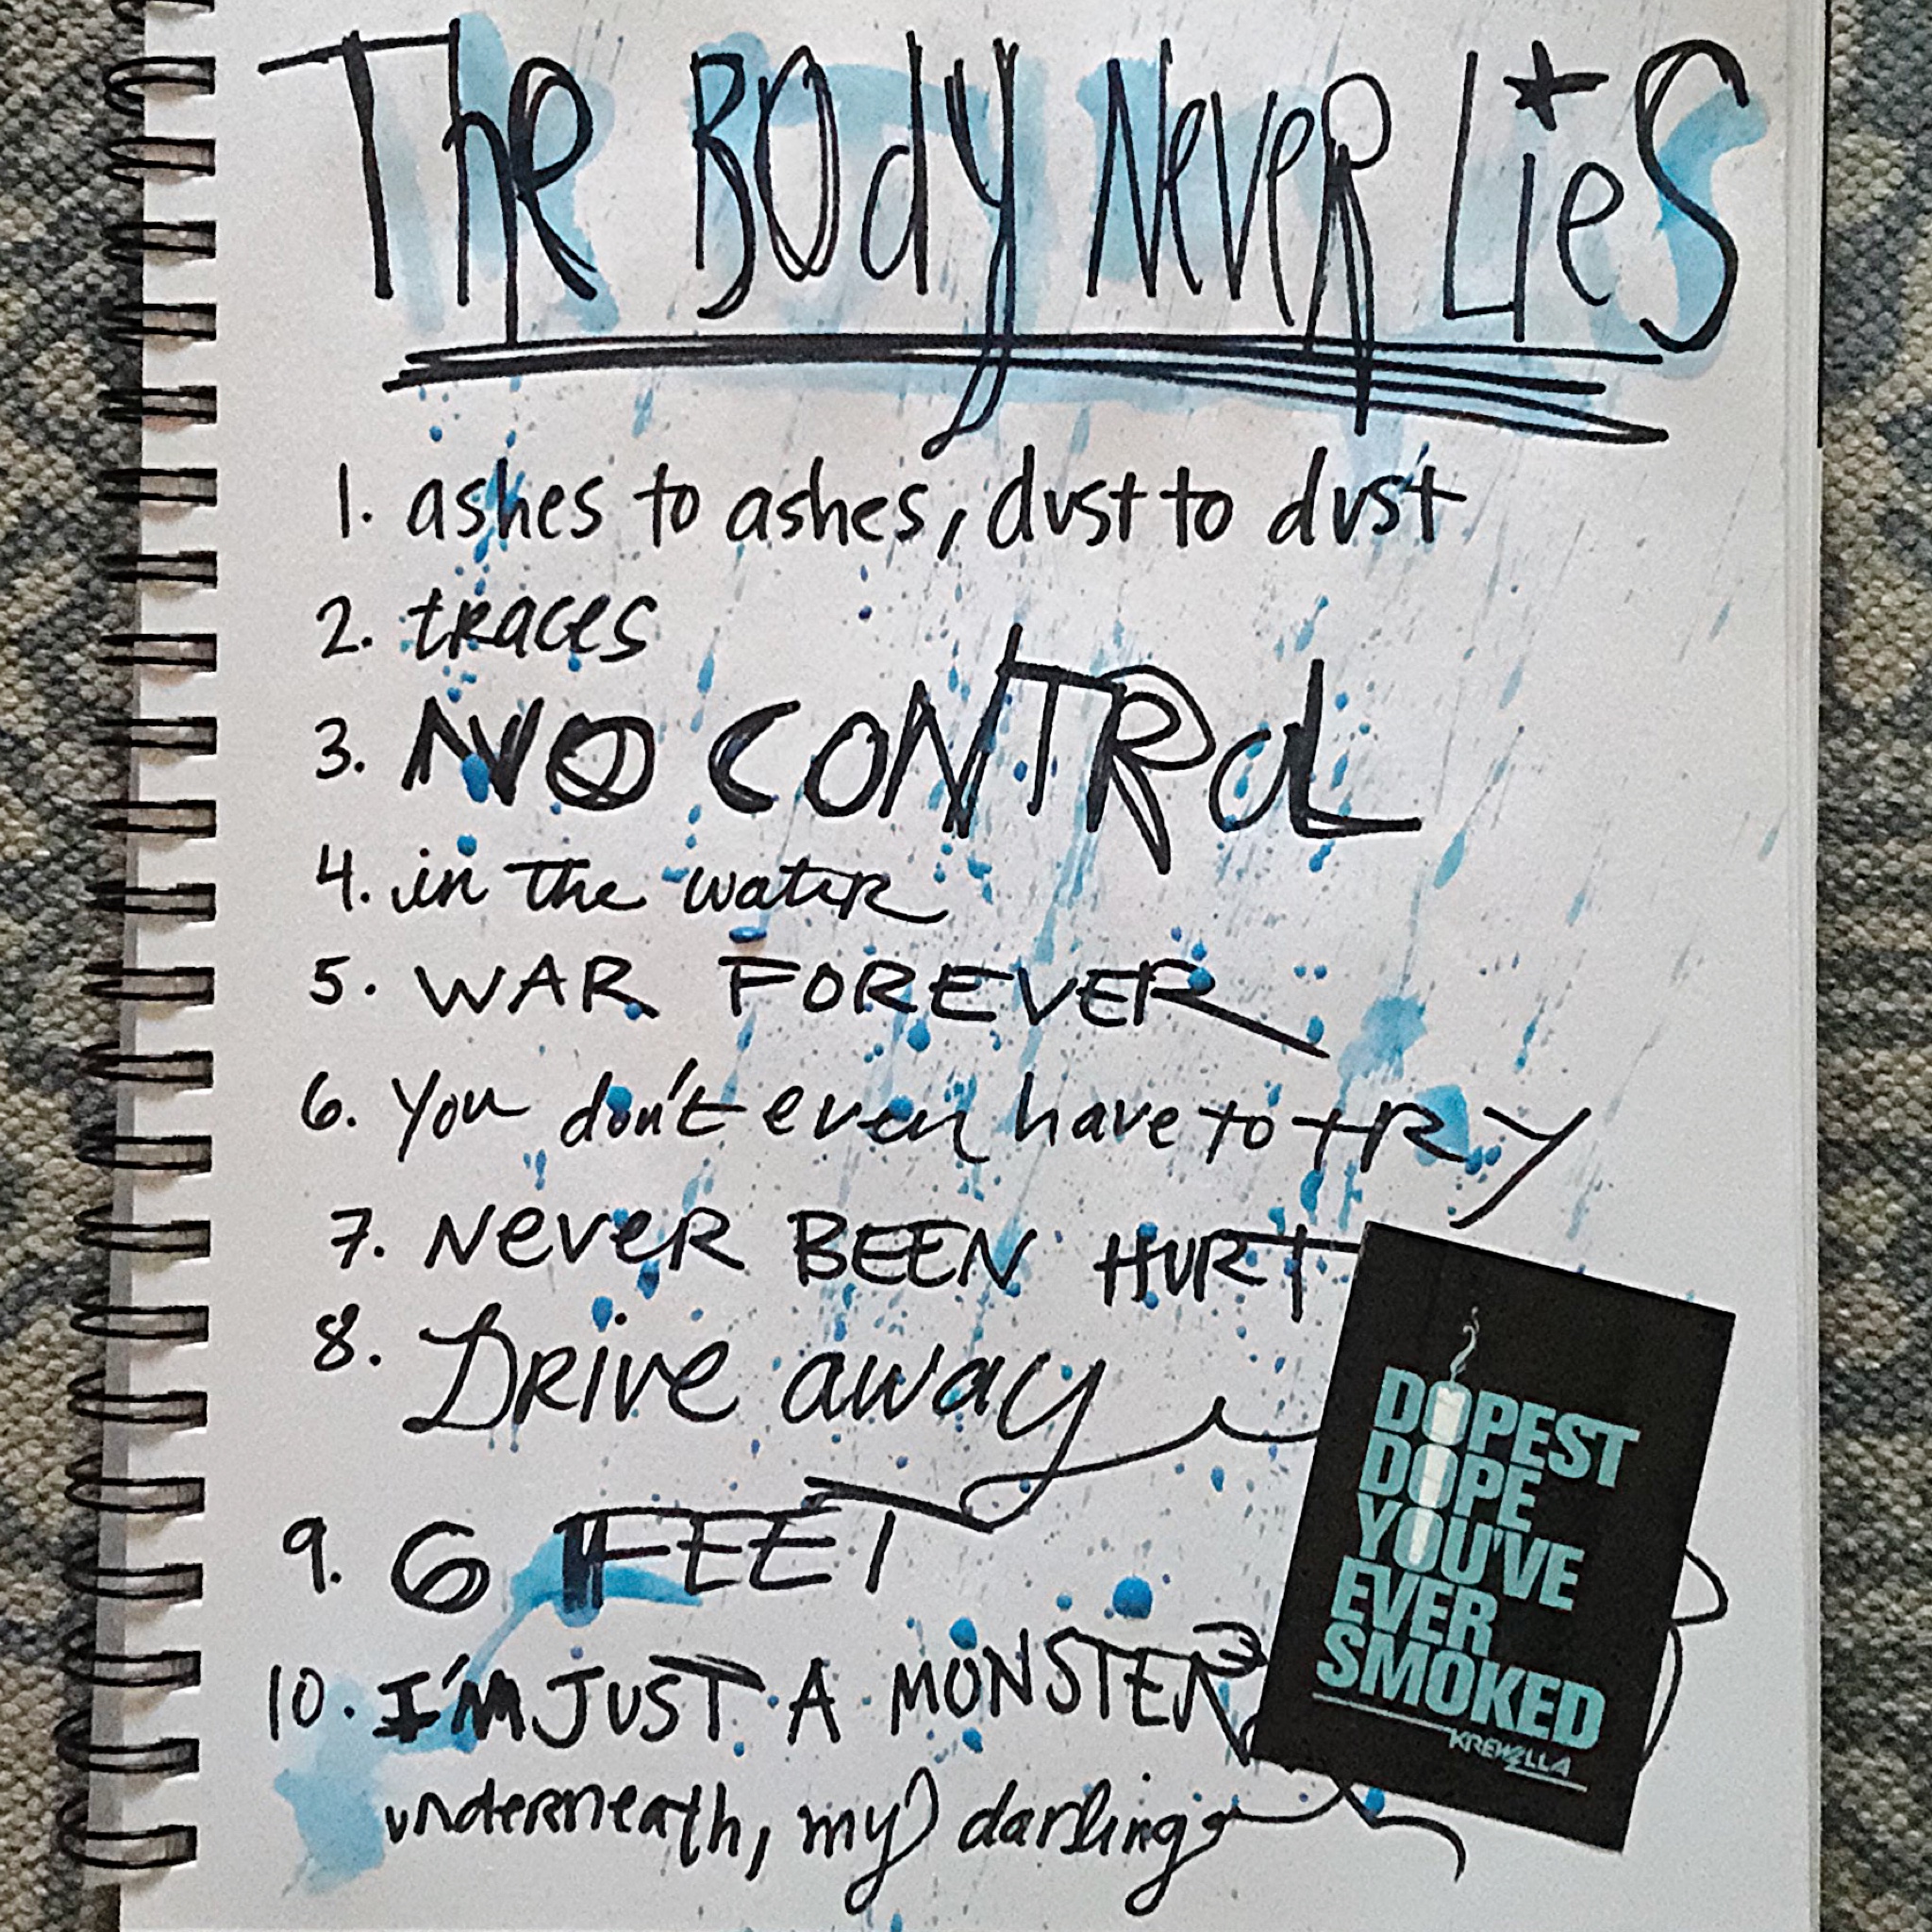 The Body Never Lies
1. ashes to ashes, dust to dust
2. traces
3. NO CONTROL
4. in the water
5. WAR FOREVER
6. You don't even have to tRY
7. Never BEEN HURT
8. Drive away
9. 6 FEET
10. I'M JUST A MONSTER
underneath, my darling
DOPEST
DOPE
YOU'VE
EVER
SMOKED
KREWELLA